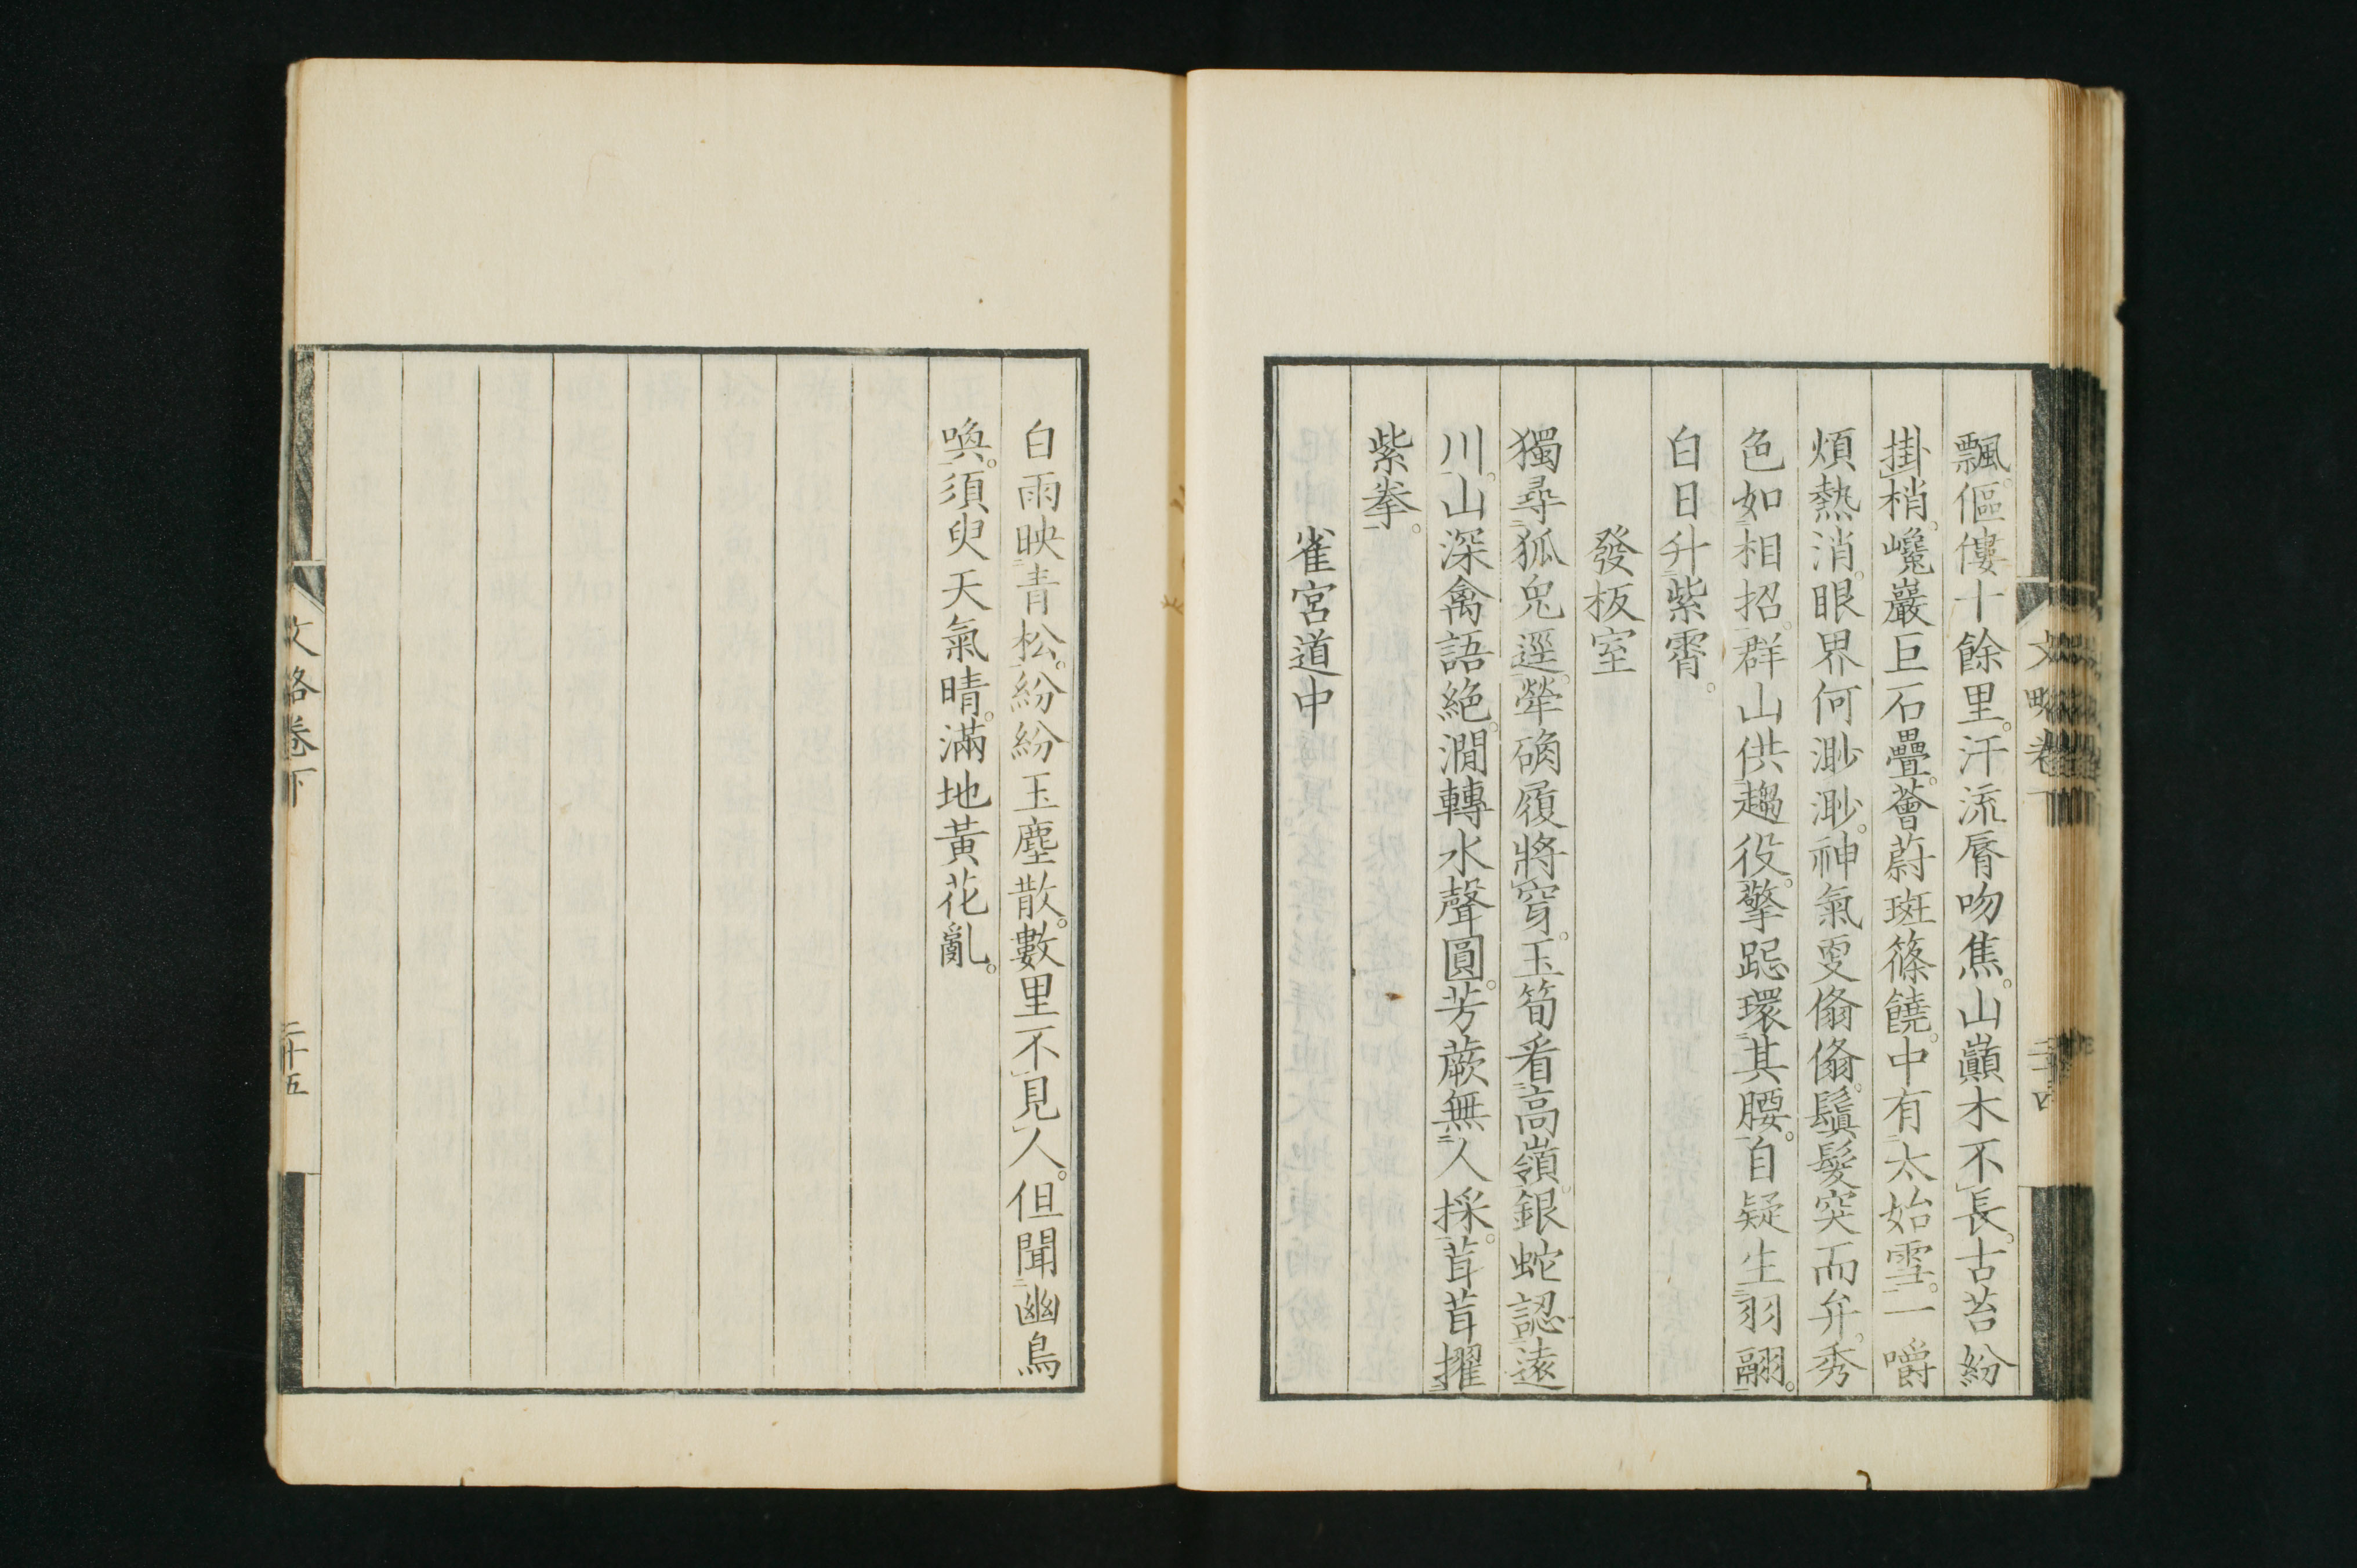 飄。傴僂十餘里。汗流脣吻焦。山巓木不長。古苔紛
掛梢。巉巖巨石疊。薈蔚斑篠饒。中有太始雪。一嚼
煩熱消。眼界何渺渺。神氣更翛翛。鬚髮突而弁。秀
色如相招。群山供趨役。擎跽環其腰。自疑生羽翮。
白日升紫霄。
發板室
獨尋狐兔逕。犖确履將穿。玉筍看高嶺。銀蛇認遠
川。山深禽語絶。澗轉水聲圓。芳蕨無人採。茸茸擢
紫拳。
雀宮道中
白雨映青松。紛紛玉塵散。數里不見人。但聞幽鳥
喚。須臾天氣晴。滿地黃花亂。
文略卷下
二十五